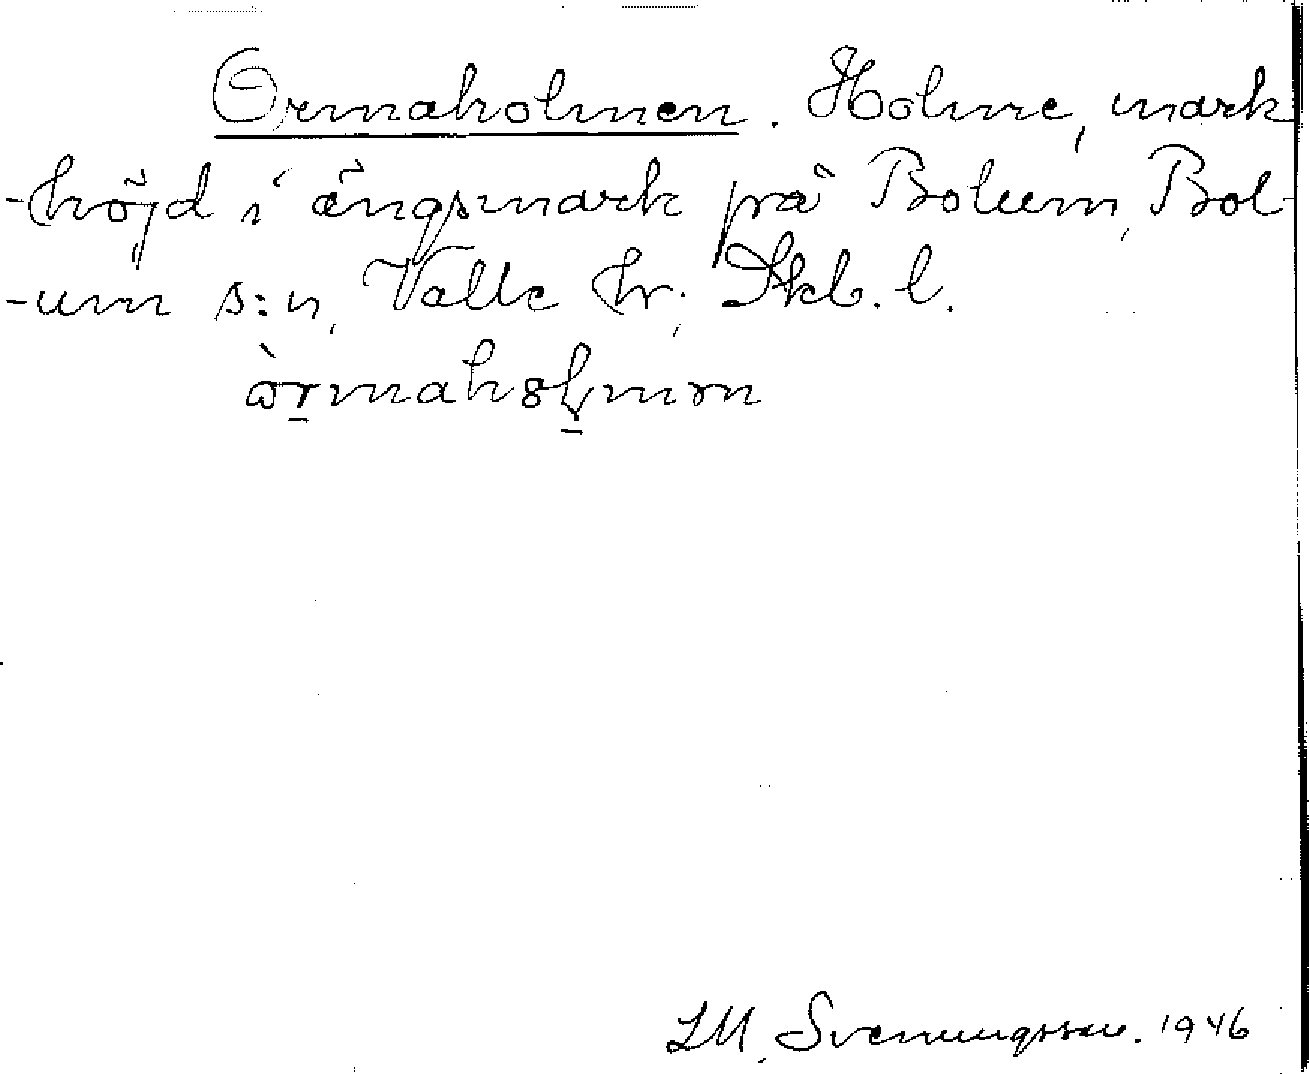 Ormaholmen. Holme, mark
-höjd i ängsmark på Bolum, Bol-
-um s:n, Valle hr, Skb. l.
òrmahol̥mən
LM. Svenungsson. 1946